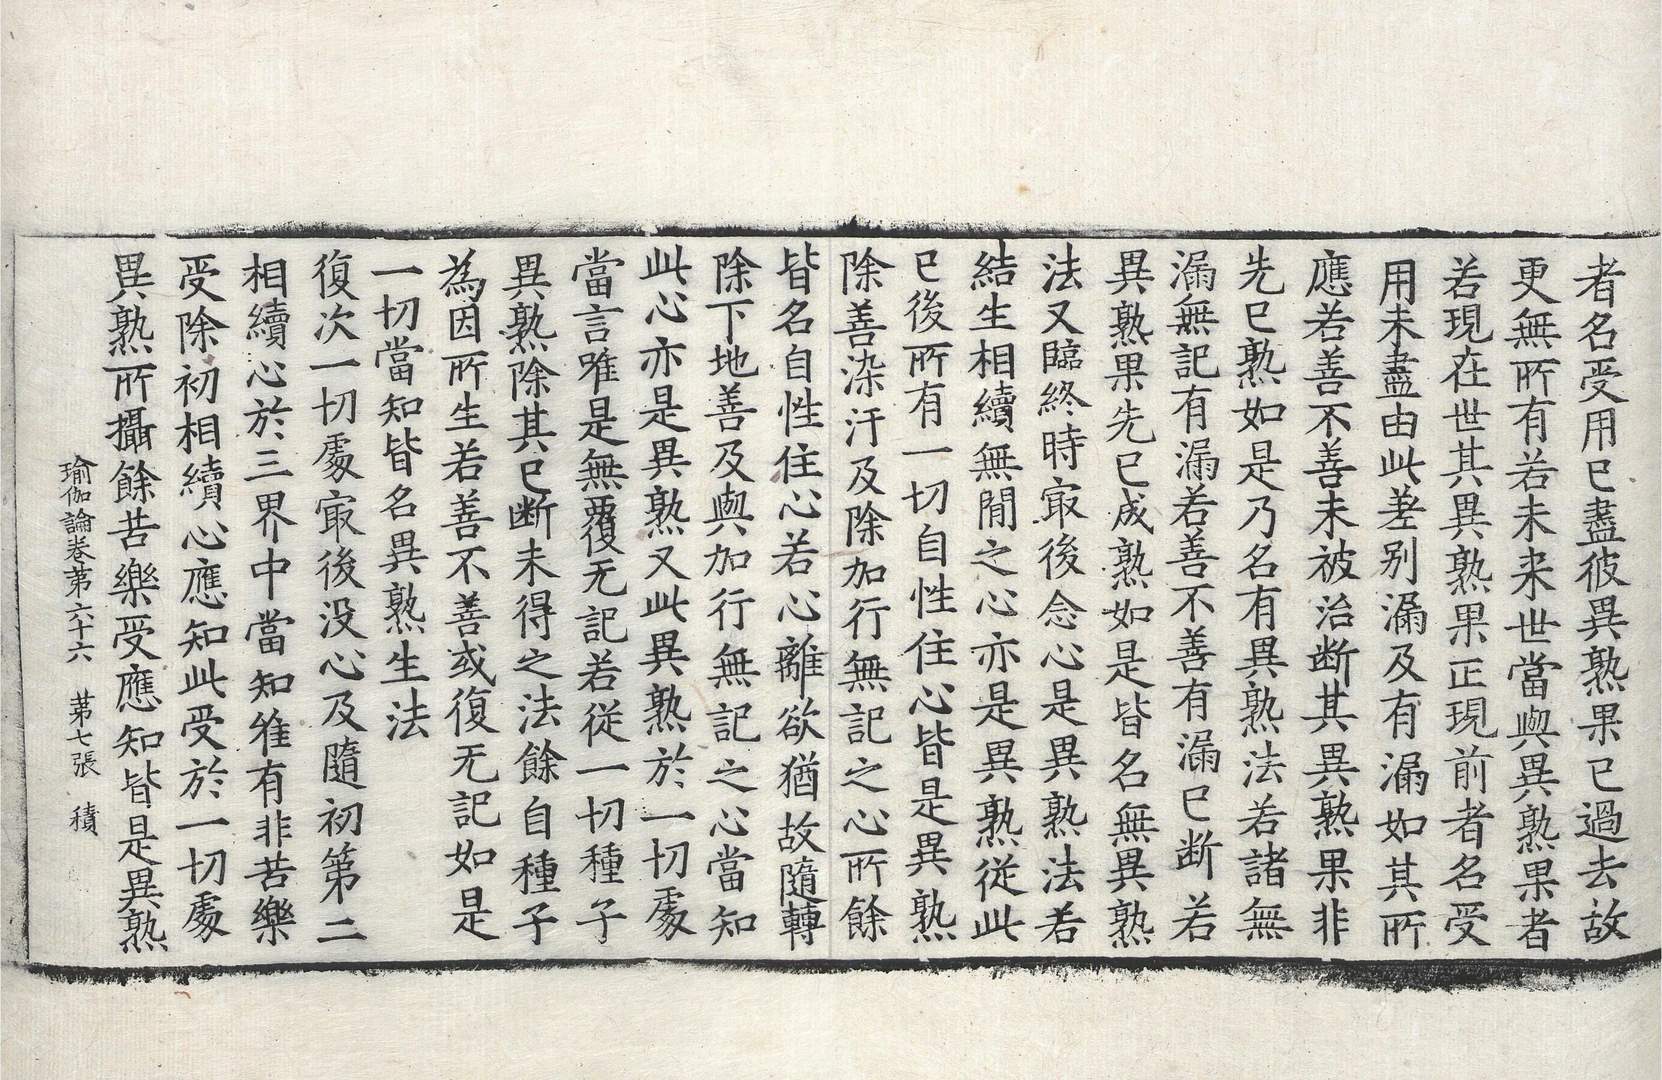 者名受用已盡彼異熟果已過去故
更無所有若未来世當與異熟果者
若現在世其異熟果正現前者名受
用未盡由此差别漏及有漏如其所
應若善不善未被治断其異熟果非
先已熟如是乃名有異熟法若諸無
漏無記有漏若善不善有漏已断若
異熟果先已成熟如是皆名無異熟
法又臨終時㝡後念心是異熟法若
結生相續無間之心亦是異熟從此
已後所有一切自性住心皆是異熟
除善染汙及除加行無記之心所餘
皆名自性住心若心離欲猶故隨轉
除下地善及與加行無記之心當知
此心亦是異熟又此異熟於一切處
當言唯是無覆无記若從一切種子
異熟除其已断未得之法餘自種子
為因所生若善不善或復无記如是
一切當知皆名異熟生法
復次一切處㝡後没心及隨初第二
相續心於三界中當知唯有非苦樂
受除初相續心應知此受於一切處
異熟所攝餘苦樂受應知皆是異熟
瑜伽論卷第六十六 第七張 積